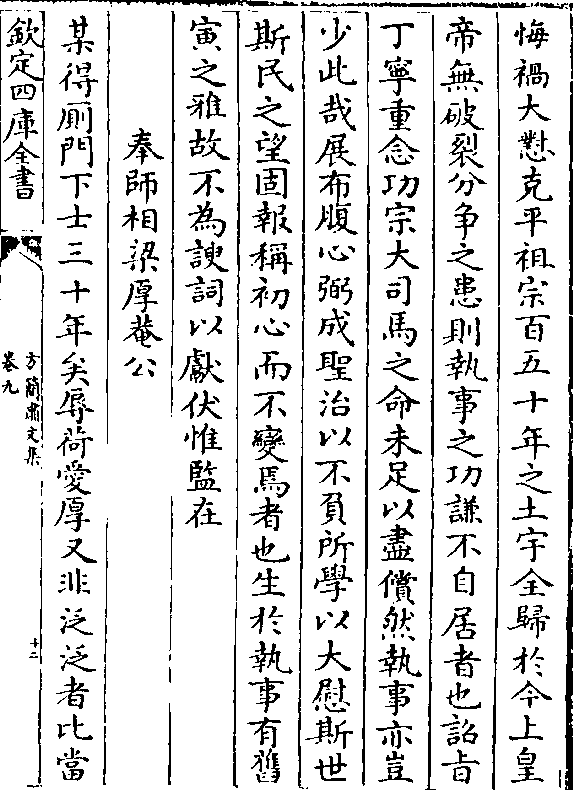 悔禍大懟克平祖宗百五十年之土宇全歸於今上皇
帝無破裂分争之患則執事之功謙不自居者也詔旨
丁寧重念功宗大司馬之命未足以盡償然執事亦豈
少此哉展布腹心弼成聖治以不負所學以大慰斯世
斯民之望固報稱初心而不變焉者也生於執事有舊
寅之雅故不為諛詞以獻伏惟監在
奉師相梁厚菴公
某得厠門下士三十年矣辱荷愛厚又非泛泛者比當
欽定四庫全書
方簡肅文集
卷九
十二